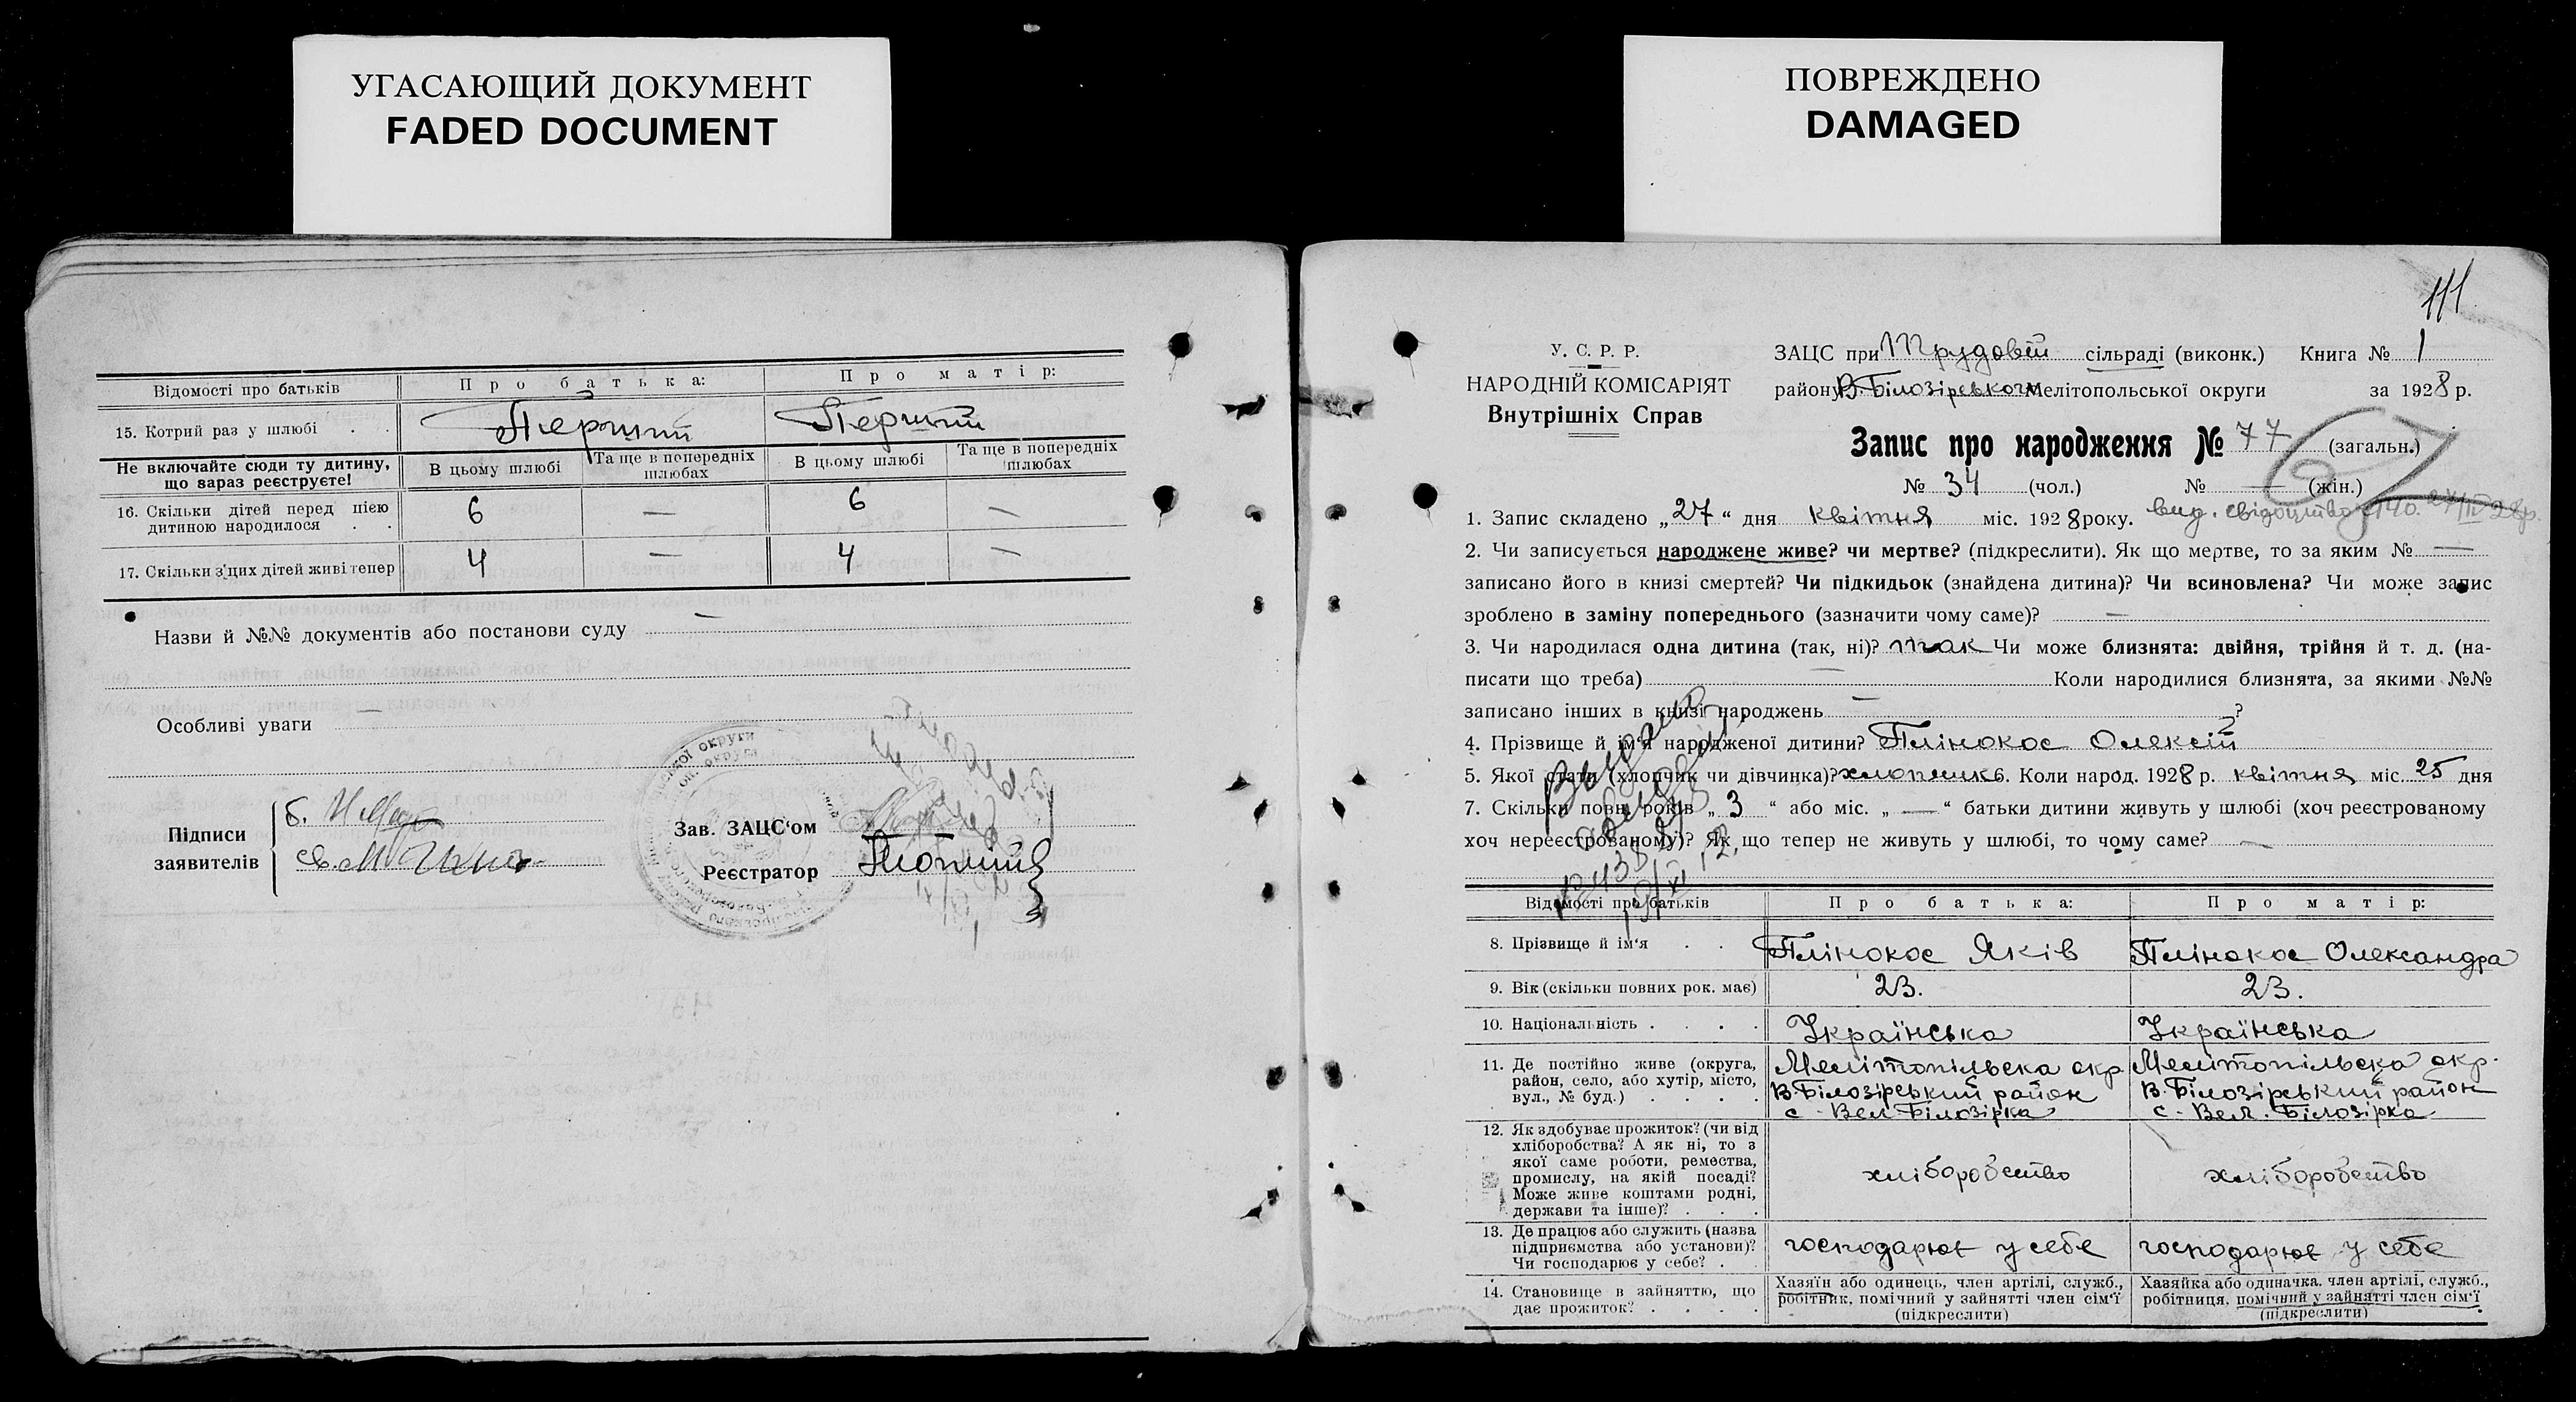 УГАСАЮЩИЙ ДОКУМЕНТ
FADED DOCUMENT
ПОВРЕЖДЕНО
DAMAGED
Відомості про батьків
Про батька:
Про матір:
15. Котрий раз у шлюбі . .
Перший
Перший
Не включайте сюди ту дитину,
що вараз реєструєте!
В цьому шлюбі
Та ще в попередніх
шлюбах
В цьому шлюбі
Та ще в попередніх
шлюбах
16. Скільки дітей перед цією
дитиною народилося . .
6
—
6
—
17. Скільки з цих дітей живі тепер
4
—
4
—
Назви й №№ документів або постанови суду —
Особливі уваги —
Підписи
заявителів
Зав. ЗАЦС'ом
Реєстратор
111
У. С. Р. Р.
НАРОДНІЙ КОМІСАРІЯТ
Внутрішніх Справ
ЗАЦС при Трудовій сільраді (виконк.) Книга № 1
району В. Білозірського Мелітопольської округи за 1928 р.
Запис про народження № 77 (загальн.)
№ 34 (чол.) № — (жін.)
1. Запис складено „27“ дня квітня міс. 1928 року.
вид. свідоцтво
2. Чи записується народжене живе? чи мертве? (підкреслити). Як що мертве, то за яким № —
записано його в книзі смертей? Чи підкидьок (знайдена дитина)? Чи всиновлена? Чи може запис
зроблено в заміну попереднього (зазначити чому саме)? —
3. Чи народилася одна дитина (так, ні)? так Чи може близнята: двійня, трійня й т. д. (на-
писати що треба) — Коли народилися близнята, за якими №№
записано інших в книзі народжень — ?
4. Прізвище й ім'я народженої дитини? Плінокос Олексій
5. Якої стати (хлопчик чи дівчинка)? хлопчик 6. Коли народ. 1928 р. квітня міс. 25 дня
7. Скільки повн. років „3“ або міс. „—“ батьки дитини живуть у шлюбі (хоч реєстрованому
хоч нереєстрованому)? Як що тепер не живуть у шлюбі, то чому саме? —
Відомості про батьків
Про батька:
Про матір:
8. Прізвище й ім'я . .
Плінокос Яків
Плінокос Олександра
9. Вік (скільки повних рок. має)
23.
23.
10. Національність . . . .
Українська
Українська
11. Де постійно живе (округа,
район, село, або хутір, місто,
вул., № буд.) . . . .
Мелітопільська окр
В. Білозірський район
с. Вел Білозірка
Мелітопільська окр.
В. Білозірський район
с. Вел. Білозірка
12. Як здобуває прожиток? (чи від
хліборобства? А як ні, то з
якої саме роботи, ремества,
промислу, на якій посаді?
Може живе коштами родні,
держави та інше)? . . .
хліборобство
хліборобство
13. Де працює або служить (назва
підприємства або установи)?
Чи господарює у себе? .
господарює у себе
господарює у себе
14. Становище в зайняттю, що
дає прожиток? . . . .
Хазяїн або одинець, член артілі, служб.,
робітник, помічний у зайнятті член сім'ї
(підкреслити)
Хазяйка або одиначка, член артілі, служб.,
робітниця, помічний у зайнятті член сім'ї
(підкреслити)